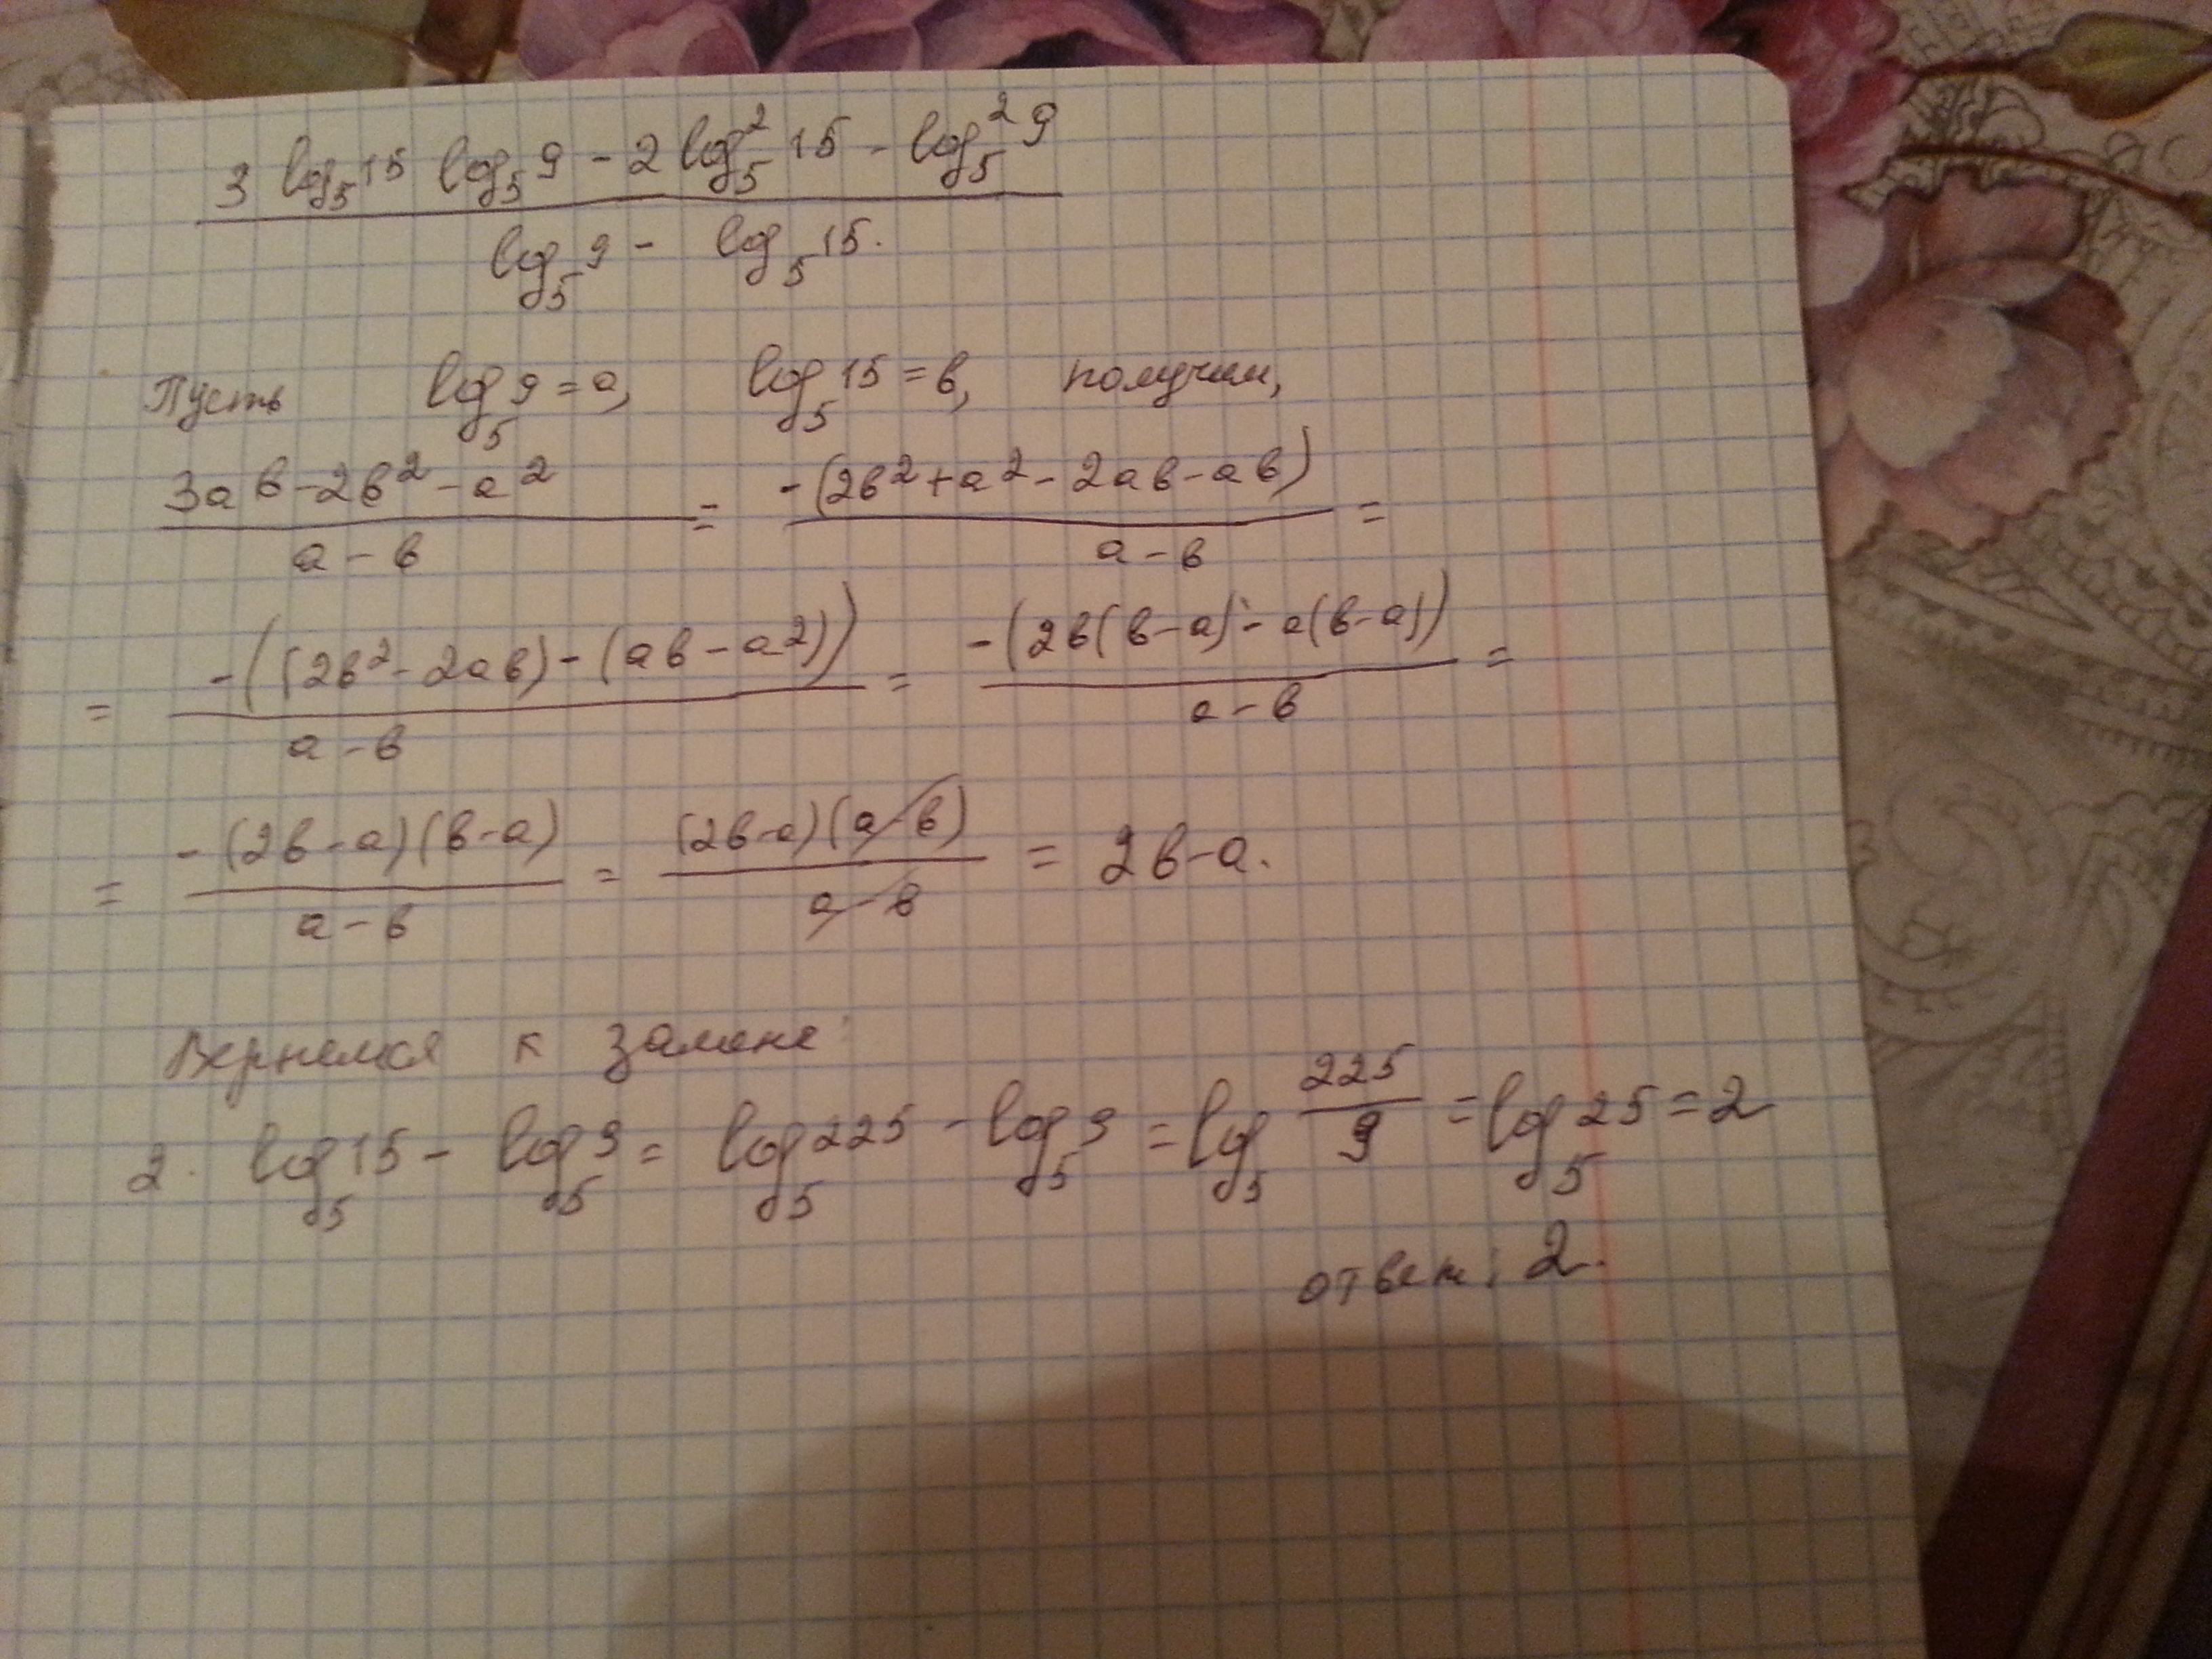 3 log₅15 log₅9 - 2 log₅²15 - log₅²9
log₅9 - log₅15.
Пусть log₅9 = a, log₅15 = в, получим,
3aв - 2в² - a² = -(2в² + a² - 2aв - aв) =
a - в a - в
= -((2в² - 2aв) - (aв - a²)) = -(2в(в - a) - a(в - a)) =
a - в a - в
= -(2в - a)(в - a) = (2в - a)(a - в) = 2в - a.
a - в a - в
Вернемся к замене:
2. log₅15 - log₅9 = log₅225 - log₅9 = log₅ 225/9 = log₅25 = 2
ответ: 2.